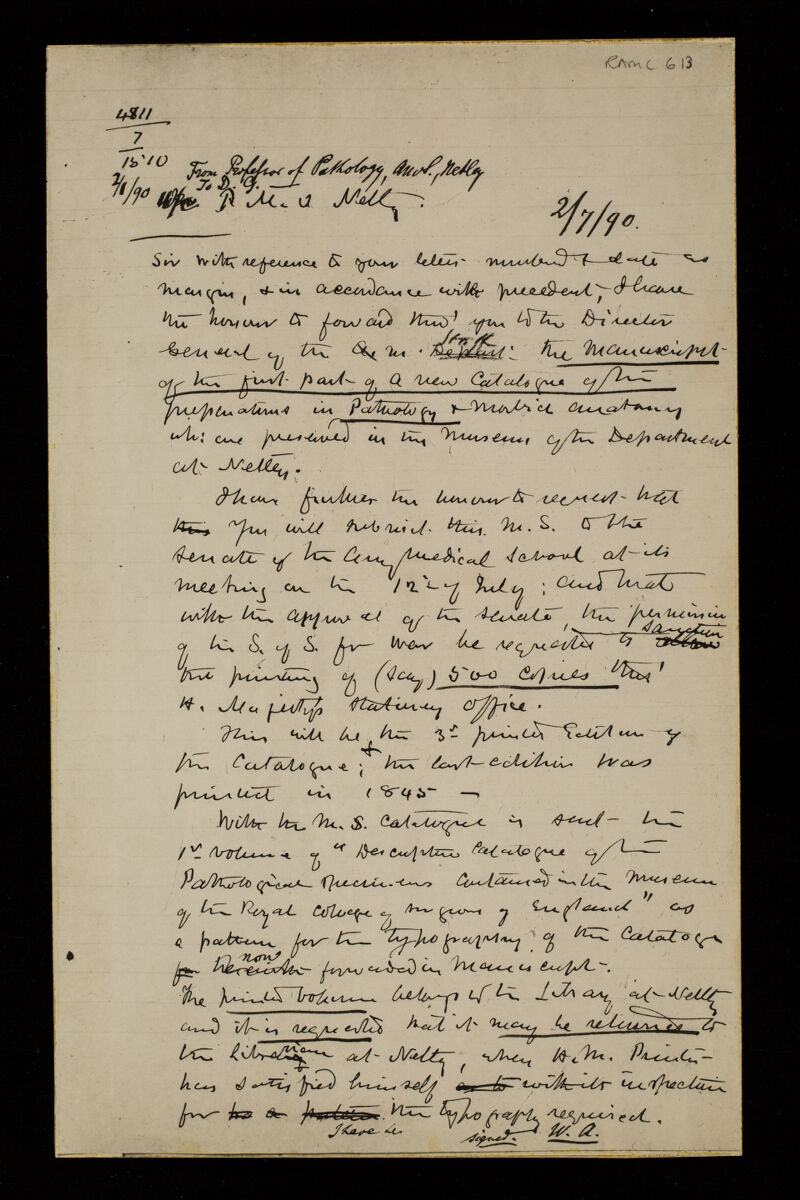 RAMC 613
4811
7
15·10
2/1/90
From Professor of Pathology, A.M.S., Netley
To D. G.
P. M. O Netley.
2/7/90.
Sir With reference to your letter numbered & date as
margin, & in accordance with precedent, I have
the honour to forward thro' you to the Director
General of the A. M. Deptmt: the Manuscript
of the first part of a new Catalogue of the
preparations in Pathology & Morbid anatomy
wh: are preserved in the Museum of the Department
at Netley.
I have further the honour to request that
this you will submit this M.S. to the
Senate of the Army Medical School at its
meeting on the 12th of July; and that
with the approval of the Senate, the permission
of the S. of S. for War be requested to sanction
the printing of (say) 500 copies thro'
H. Majesty's Stationery Office.
This will be the 3rd printed Edition of
the Catalogue; & the last edition was
printed in 1845 —
With the M.S. Catalogue is sent the
1st volume of "Descriptive Catalogue of the
Pathological Specimens contained in the Museum
of the Royal College of Surgeons of England" as
a pattern for the typography of the Catalogue
for herewith now forwarded in Manuscript.
The printed volume belongs to the Library at Netley
and it is requested that it may be returned to
the librarian at Netley, when H.M. Printer
has satisfied himself as to with its inspection
for to a pattern the typography required.
I have &c
signed. W. A.